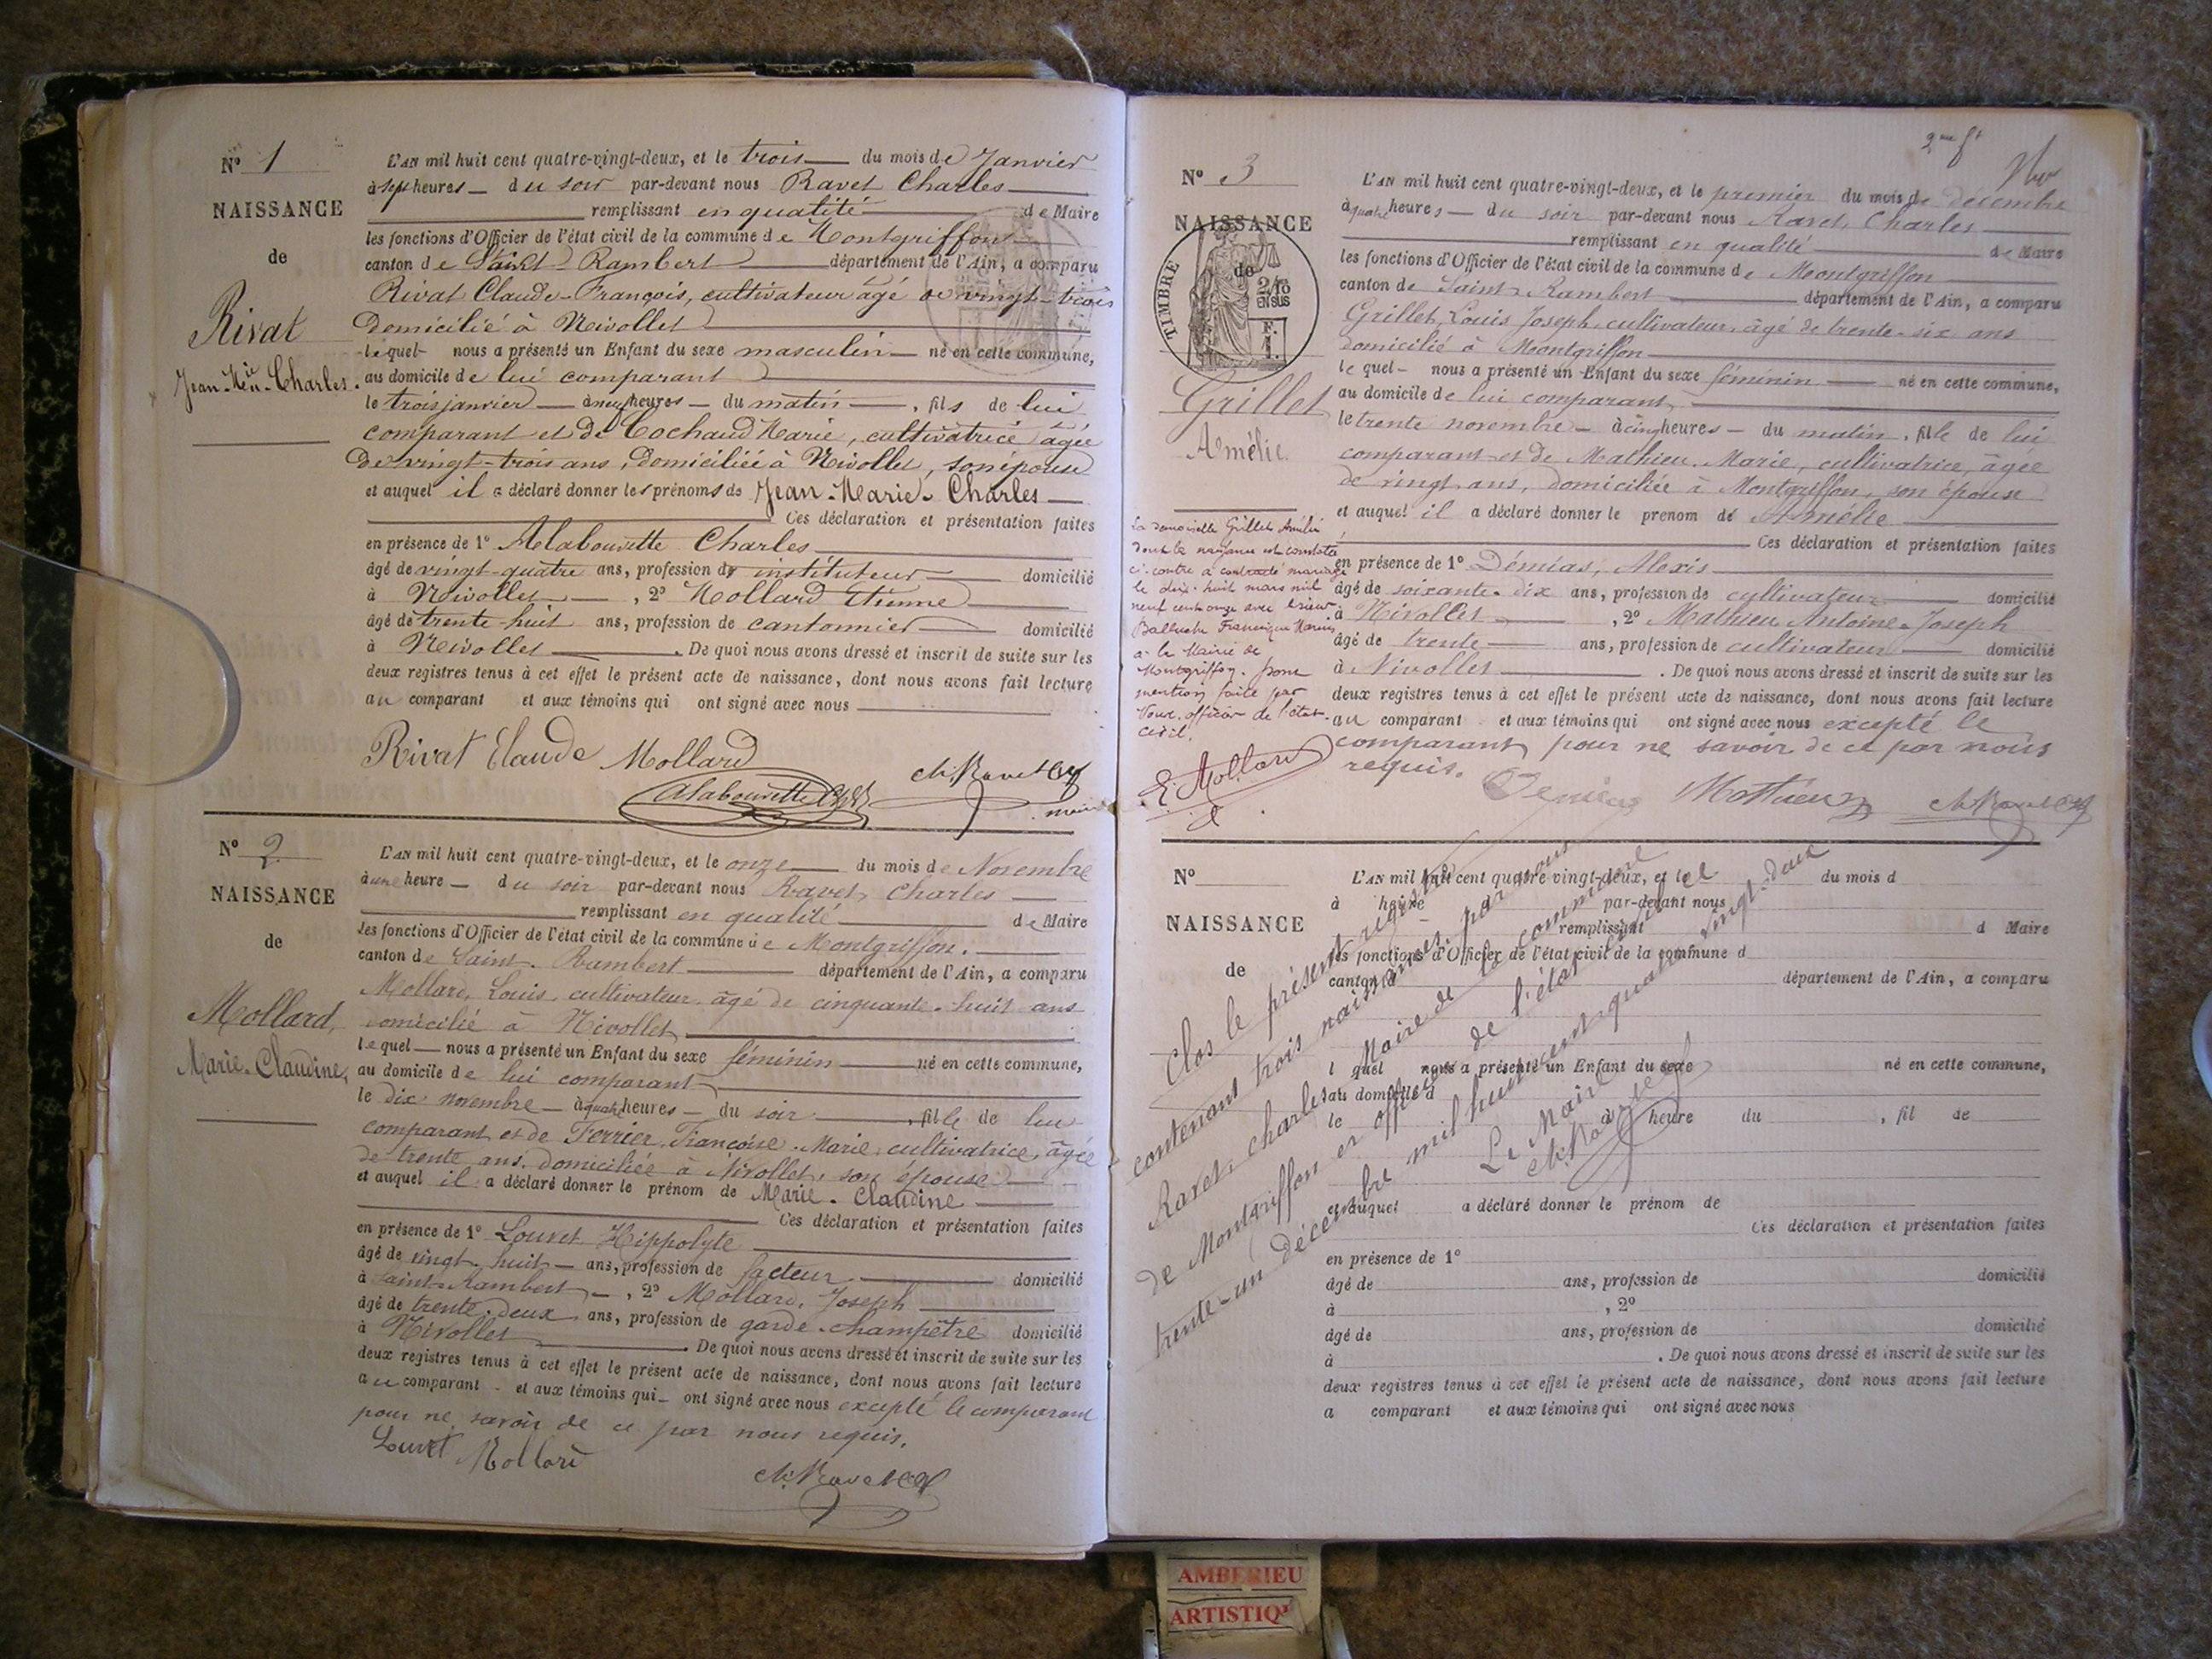 N° 1
NAISSANCE
de
Rivat
Jean-Marie-Charles.
L'AN mil huit cent quatre-vingt-deux, et le trois du mois de Janvier
à sept heures du soir par-devant nous Ravet Charles
remplissant en qualité de Maire
les fonctions d'Officier de l'état civil de la commune de Montgriffon
canton de Saint-Rambert département de l'Ain, a comparu
Rivat Claude-François, cultivateur âgé de vingt-trois
domicilié à Nivollet
lequel nous a présenté un Enfant du sexe masculin né en cette commune,
au domicile de lui comparant
le trois janvier à neuf heures du matin, fils de lui
comparant et de Cochaud Marie, cultivatrice âgée
de vingt-trois ans, domiciliée à Nivollet, son épouse
et auquel il a déclaré donner les prénoms de Jean-Marie-Charles
Ces déclaration et présentation faites
en présence de 1° Alabouvette Charles
âgé de vingt-quatre ans, profession de instituteur domicilié
à Nivollet, 2° Mollard Etienne
âgé de trente-huit ans, profession de cantonnier domicilié
à Nivollet. De quoi nous avons dressé et inscrit de suite sur les
deux registres tenus à cet effet le présent acte de naissance, dont nous avons fait lecture
au comparant et aux témoins qui ont signé avec nous
Rivat Claude Mollard
Alabouvette Ch. Ravet
maire
N° 2
NAISSANCE
de
Mollard,
Marie-Claudine,
L'AN mil huit cent quatre-vingt-deux, et le onze du mois de Novembre
à une heure du soir par-devant nous Ravet, Charles
remplissant en qualité de Maire
les fonctions d'Officier de l'état civil de la commune de Montgriffon.
canton de Saint-Rambert département de l'Ain, a comparu
Mollard, Louis, cultivateur, âgé de cinquante-huit ans
domicilié à Nivollet
lequel nous a présenté un Enfant du sexe féminin né en cette commune,
au domicile de lui comparant
le dix novembre à quatre heures du soir, fille de lui
comparant et de Ferrier, Françoise-Marie, cultivatrice, âgée
de trente ans, domiciliée à Nivollet, son épouse
et auquel il a déclaré donner le prénom de Marie-Claudine
Ces déclaration et présentation faites
en présence de 1° Louvet Hippolyte
âgé de vingt-huit ans, profession de facteur domicilié
à Saint-Rambert, 2° Mollard, Joseph
âgé de trente-deux ans, profession de garde-champêtre domicilié
à Nivollet. De quoi nous avons dressé et inscrit de suite sur les
deux registres tenus à cet effet le présent acte de naissance, dont nous avons fait lecture
au comparant et aux témoins qui ont signé avec nous excepté le comparant
pour ne savoir de ce par nous requis.
Louvet Mollard
Ch. Ravet
N° 3
NAISSANCE
de
TIMBRE
2/10
EN SUS
F.
1.
Grillet
Amélie
La demoiselle Grillet Amélie
dont la naissance est constatée
ci-contre a contracté mariage
le dix-huit mars mil
neuf cent onze avec le sieur
Marius
à la Mairie de
Montgriffon. pour
mention faite par
Nous, officier de l'état
civil.
E. Mollard
L'AN mil huit cent quatre-vingt-deux, et le premier du mois de décembre
à quatre heures du soir par-devant nous Ravet, Charles
remplissant en qualité de Maire
les fonctions d'Officier de l'état civil de la commune de Montgriffon
canton de Saint-Rambert département de l'Ain, a comparu
Grillet, Louis Joseph, cultivateur, âgé de trente-six ans
domicilié à Montgriffon
lequel nous a présenté un Enfant du sexe féminin né en cette commune,
au domicile de lui comparant,
le trente novembre à cinq heures du matin, fille de lui
comparant et de Mathieu, Marie, cultivatrice, âgée
de vingt ans, domiciliée à Montgriffon, son épouse
et auquel il a déclaré donner le prénom de Amélie
Ces déclaration et présentation faites
en présence de 1° Démias, Alexis
âgé de soixante-dix ans, profession de cultivateur domicilié
à Nivollet, 2° Mathieu Antoine-Joseph
âgé de trente ans, profession de cultivateur domicilié
à Nivollet. De quoi nous avons dressé et inscrit de suite sur les
deux registres tenus à cet effet le présent acte de naissance, dont nous avons fait lecture
au comparant et aux témoins qui ont signé avec nous excepté le
comparant pour ne savoir de ce par nous
requis.
Demias Mathieu Ch. Ravet
N°
NAISSANCE
de
L'AN mil huit cent quatre-vingt-deux, et le du mois d
à heure d par-devant nous
remplissant d Maire
les fonctions d'Officier de l'état civil de la commune d
canton d département de l'Ain, a comparu
l quel nous a présenté un Enfant du sexe né en cette commune,
au domicile d
le à heure du , fil de
et auquel a déclaré donner le prénom de
Ces déclaration et présentation faites
en présence de 1°
âgé de ans, profession de domicilié
à , 2°
âgé de ans, profession de domicilié
à . De quoi nous avons dressé et inscrit de suite sur les
deux registres tenus à cet effet le présent acte de naissance, dont nous avons fait lecture
a comparant et aux témoins qui ont signé avec nous
Clos le présent registre
contenant trois naissances par nous
Ravet, Charles Maire de la commune
de Montgriffon et officier de l'état civil le
trente-un décembre mil huit cent quatre-vingt-deux
Le Maire
Ch. Ravet
AMBERIEU
ARTISTIQ